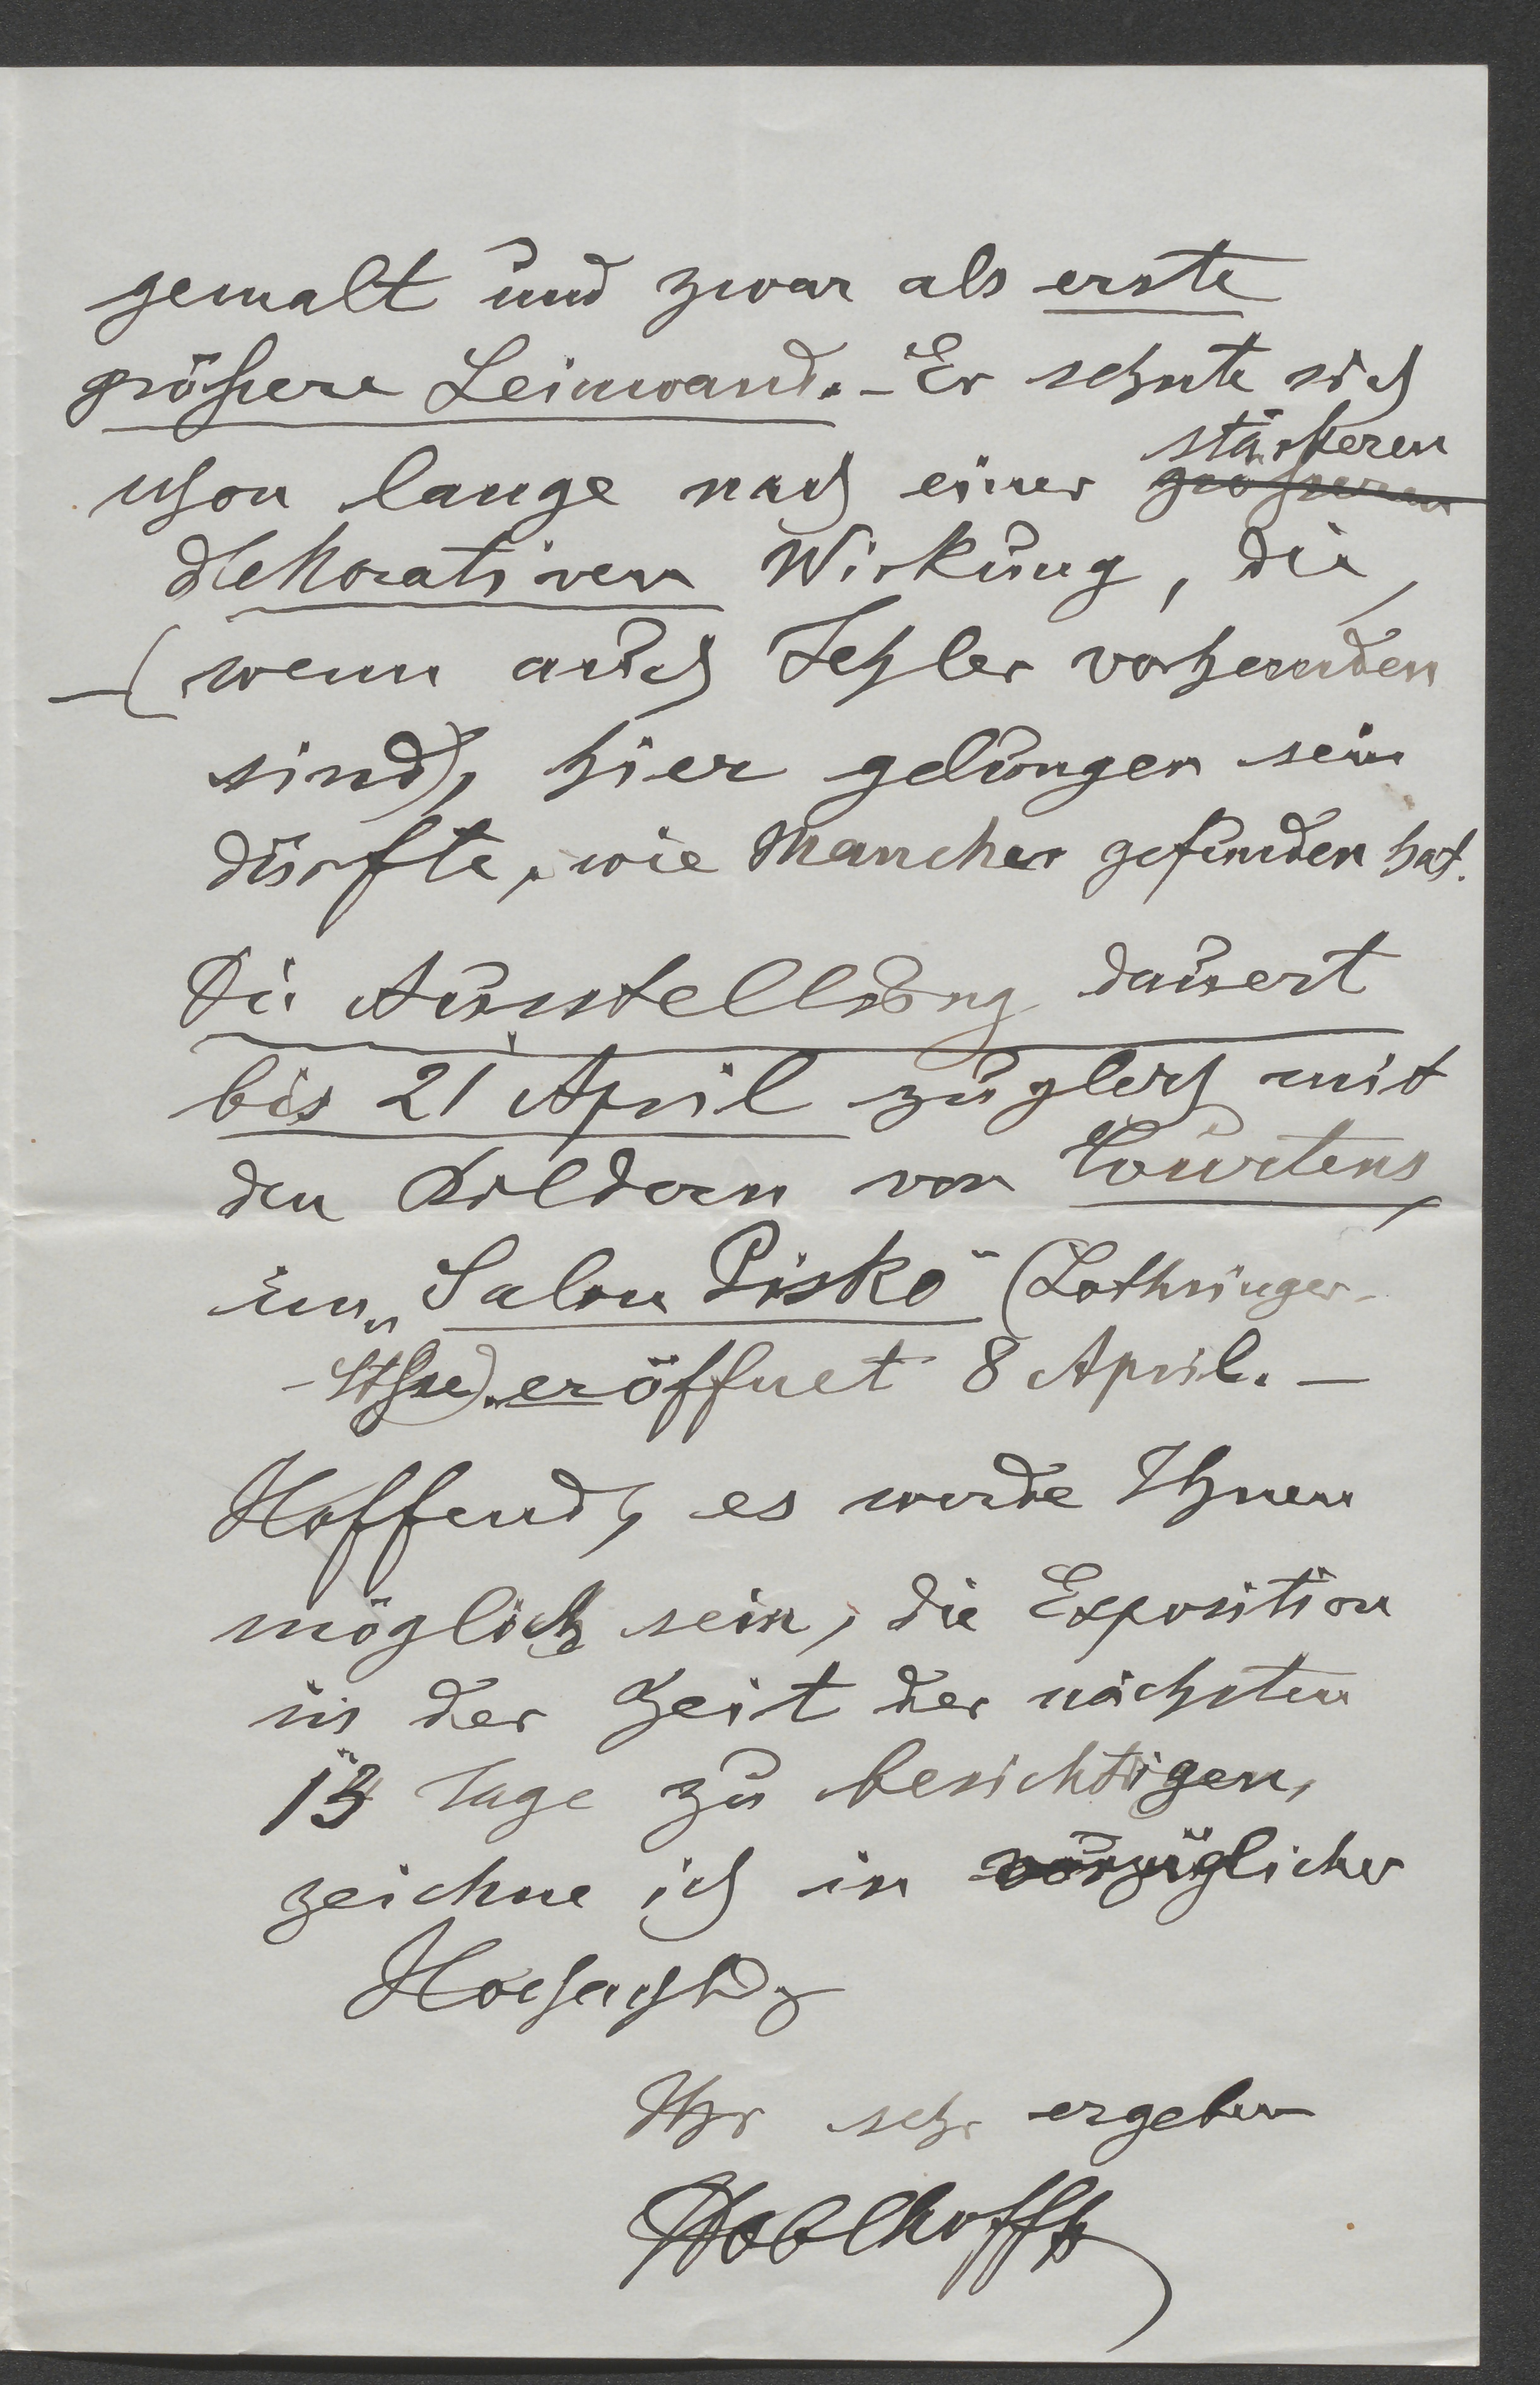 gemalt und zwar als erste
größere Leinwand. – Er sehnte sich
schon lange nach einer stärkeren
dekorativen Wirkung, die,
– (wenn auch Fehler vorhanden
sind), hier gelungen sein
dürfte, wie Mancher gefunden hat.
Die Ausstellung dauert
bis 21 April zugleich mit
den Bildern von Courtens,
im „Salon Pisko“ (Lothringer-
-Stsse). eröffnet 8 April. –
Hoffend, es werde Ihnen
möglich sein, die Exposition
in der Zeit der nächsten
Tage zu besichtigen,
zeichne ich in vorzüglicher
Hochachtg
Ihr sehr ergeben